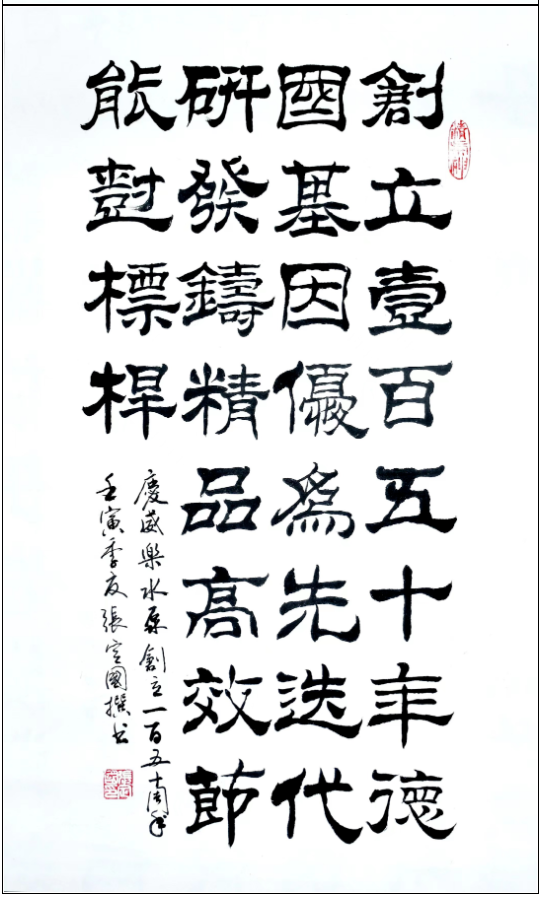 創立壹百五十年德
國基因優為先迭代
研發鑄精品高效節
能對標桿
慶威樂水泵創立一百五十周年
壬寅季夏張定國撰书